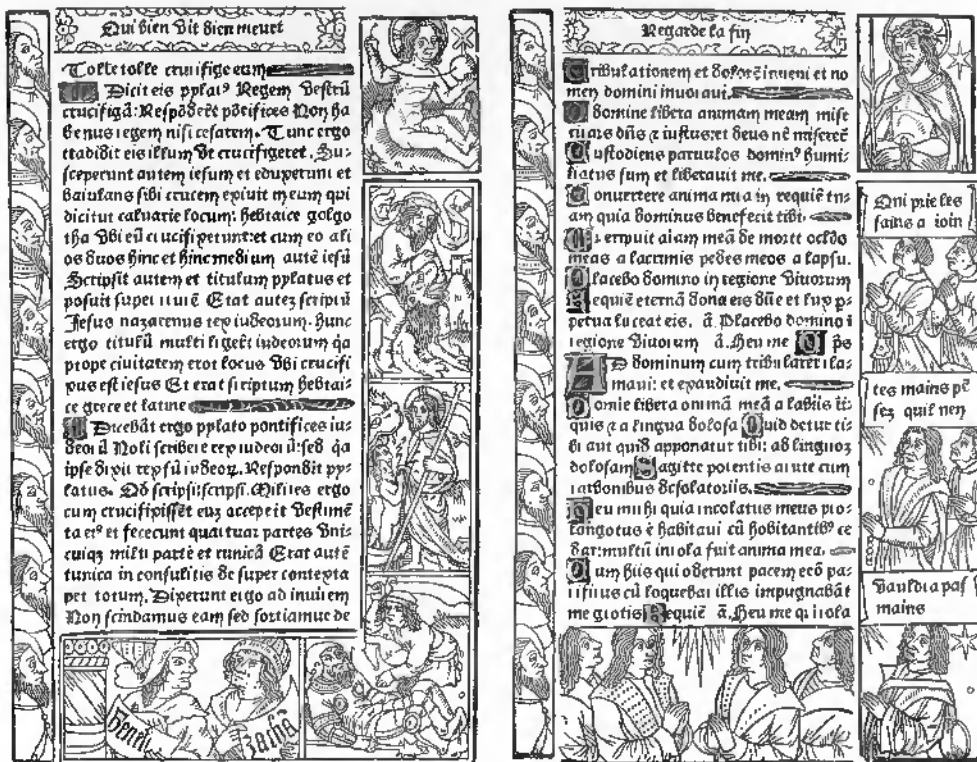 Qui bien vit bien meurt
Tolle tolle crucifige eum
Dicit eis pylatꝰ Regem vestrū
crucifigā: Respōderēt pōtifices Non ha
benus regem nisi cesarem. Tunc ergo
tradidit eis illum vt crucifigeret. Su:
sceperunt autem iesum et eduxerunt et
baiulans sibi crucem exiuit in eum qui
dicitur caluarie locum: hebraice golgo
tha vbi eū crucifixerunt: et cum eo ali
os duos hinc et hinc medium autē iesū
Scripsit autem et titulum pylatus et
posuit super crucē Erat autez scriptū
Jesus nazarenus rex iudeorum. hunc
ergo titulū multi ligerūt iudeorum qā
prope ciuitatem erot locus vbi crucifi
xus est iesus Et erat scriptum hebrai:
ce grece et latine
Dicebāt ergo pylato pontifices iu:
deorū Noli scribere rex iudeorū: sed qā
ipse dixit rex sū iudeoꝝ. Respondit py:
latus. Qd scripsi: scripsi. Milites ergo
cum crucifixissēt euz acceperūt vestimē
ta eiꝰ et fecerunt quattuar partes vni:
cuiqꝫ militi partē et tunicā Erat autē
tunica in consutilis de super contexta
per totum. Dixerunt ergo ad inuicem
Non scindamus eam sed sortiamur de
Regarde la fin
Tribulationem et dolorē inueni et no
men domini inuocaui.
O domine libera animam meam mise
ricors dn̄s ⁊ iustus: et deus nē miserēt
Custodiens paruulos dominꝰ humi:
liatus sum et liberauit me.
Conuertere anima mea in requiē tu:
am quia dominus benefecit tibi
Q. eripuit aīam meā de morte ocldo
meas a lacrimis pedes meos a lapsu.
Placebo domino in regione viuorum
Requiē eternā dona eis dn̄e et lux p:
petua luceat eis. ā. Placebo domino i
regione viuorum ā. Heu me ps
AD dominum cum tribularer cla:
maui: et exaudiuit me.
Domie libera onimā meā a labiis ii:
quis ⁊ a lingua dolosa Quid detur ti:
bi aut quid apponatur tibi: ad linguoz
dolosam Sagitte potentis acute cum
carbonibus desolatoriis.
Heu mihi quia incolatus meus pro:
langotus ē habitaui cū hobitantibꝰ ce
dar: multū incola fuit anima mea.
Cum hiis qui oderunt pacem erā pa:
cificus cū loquebar illis impugnabāt
me grotis Requiē ā. Heu me q incola
Qui prie les
sains a ioin
tes mains pē
sez quil nen
vauldra pas
mains